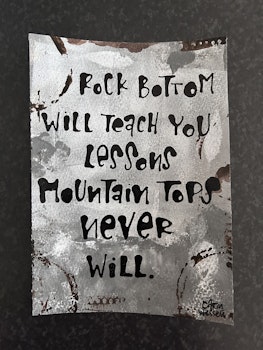 Rock Bottom
will teach you
lessons
mountain tops
never
will.